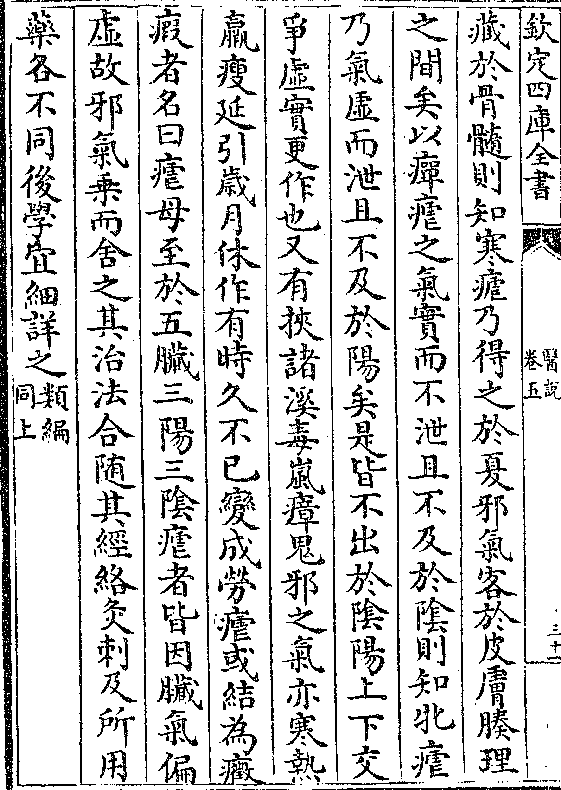 欽定四庫全書
醫說
卷五
三十一
藏於骨髓則知寒瘧乃得之於夏邪氣客於皮膚腠理
之間矣以癉瘧之氣實而不泄且不及於陰則知牝瘧
乃氣虛而泄且不及於陽矣是皆不出於陰陽上下交
爭虛實更作也又有挾諸溪毒嵐瘴鬼邪之氣亦寒熱
羸瘦延引歲月休作有時久不已變成勞瘧或結為癥
瘕者名曰瘧母至於五臟三陽三陰瘧者皆因臟氣偏
虛故邪氣乘而舍之其治法合随其經絡灸刺及所用
藥各不同後學宜細詳之類編
同上